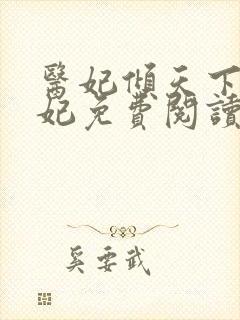 醫妃傾天下
妃免費閱讀
奚要武